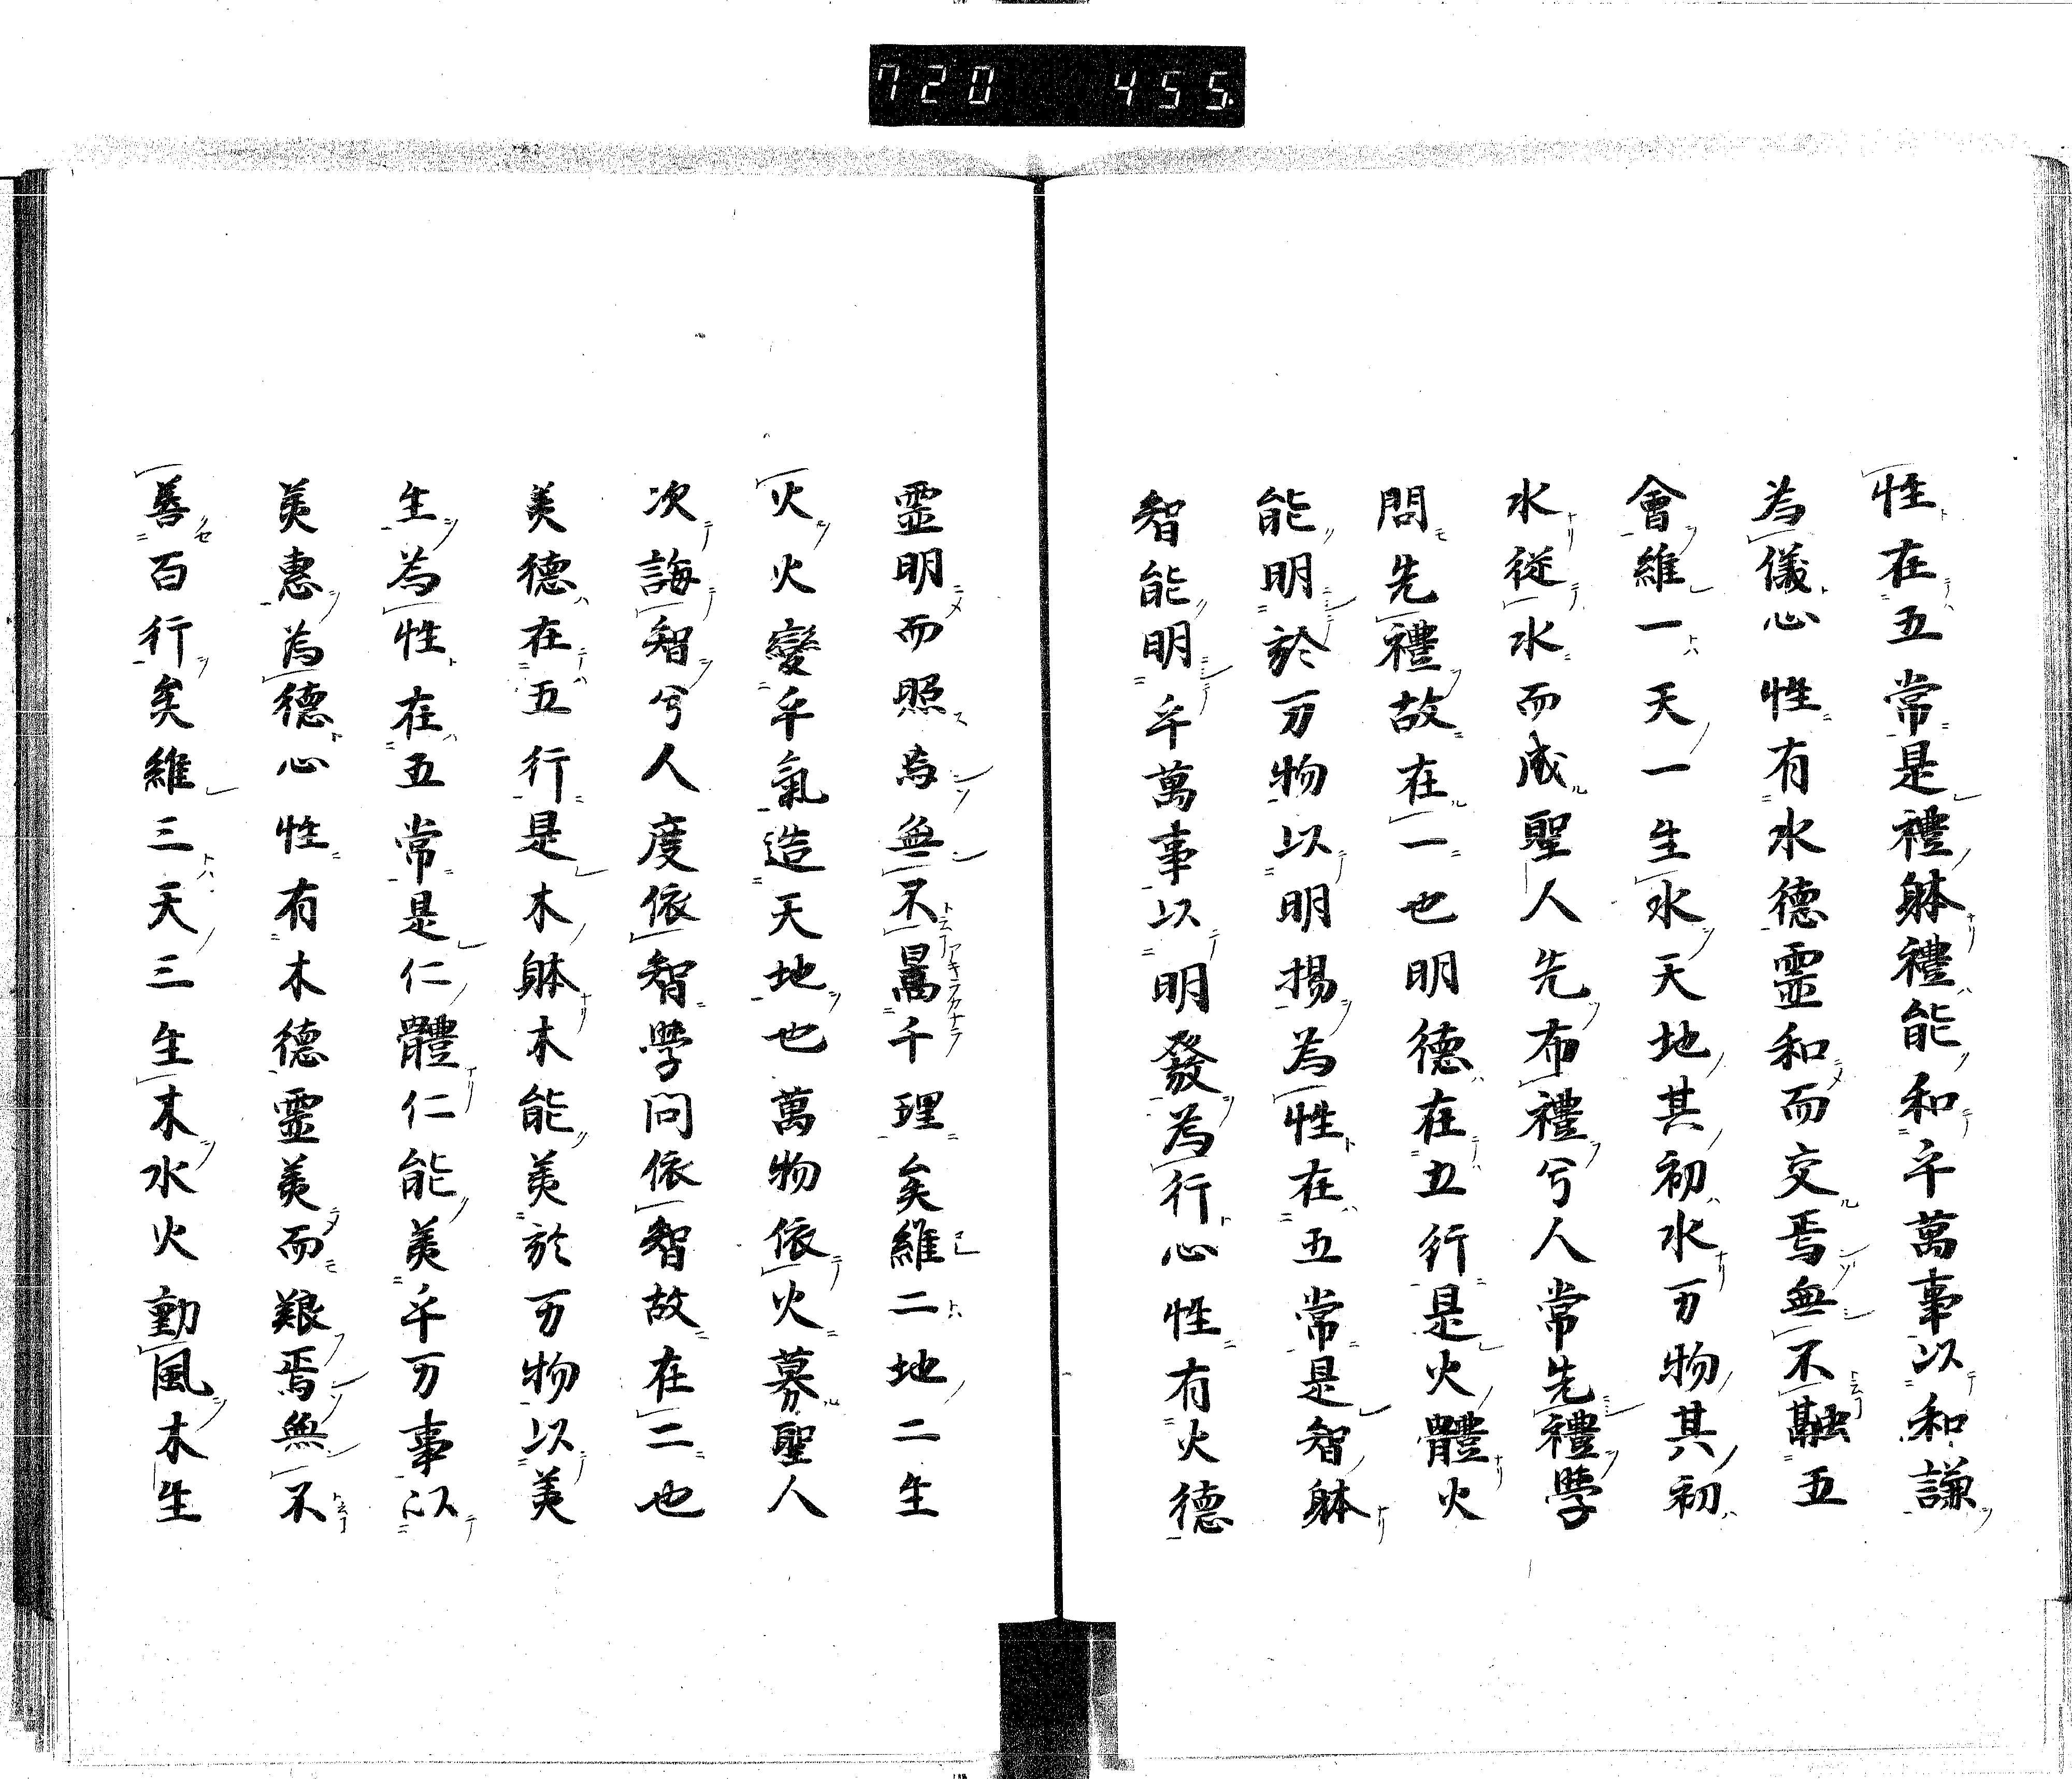 720 455
性在五常是禮躰禮能和乎萬事以和謙
為儀心性有水德靈和而交焉無不融五
會維一天一生水天地其初水万物其初
水從水而成聖人先布禮兮人常先禮學
問先禮故在一也明德在五行是火體火
能明於万物以明揚為性在五常是智躰
智能明乎萬事以明發為行心性有火德
靈明而照為無不暠千理矣維二地二生
火火變乎氣造天地也萬物依火募聖人
次誨智兮人度依智學問依智故在二也
美德在五行是木躰木能美於万物以美
生為性在五常是仁體仁能美乎万事以
美惠為德心性有木德靈美而艱焉無不
善百行矣維三天三生木水火動風木生